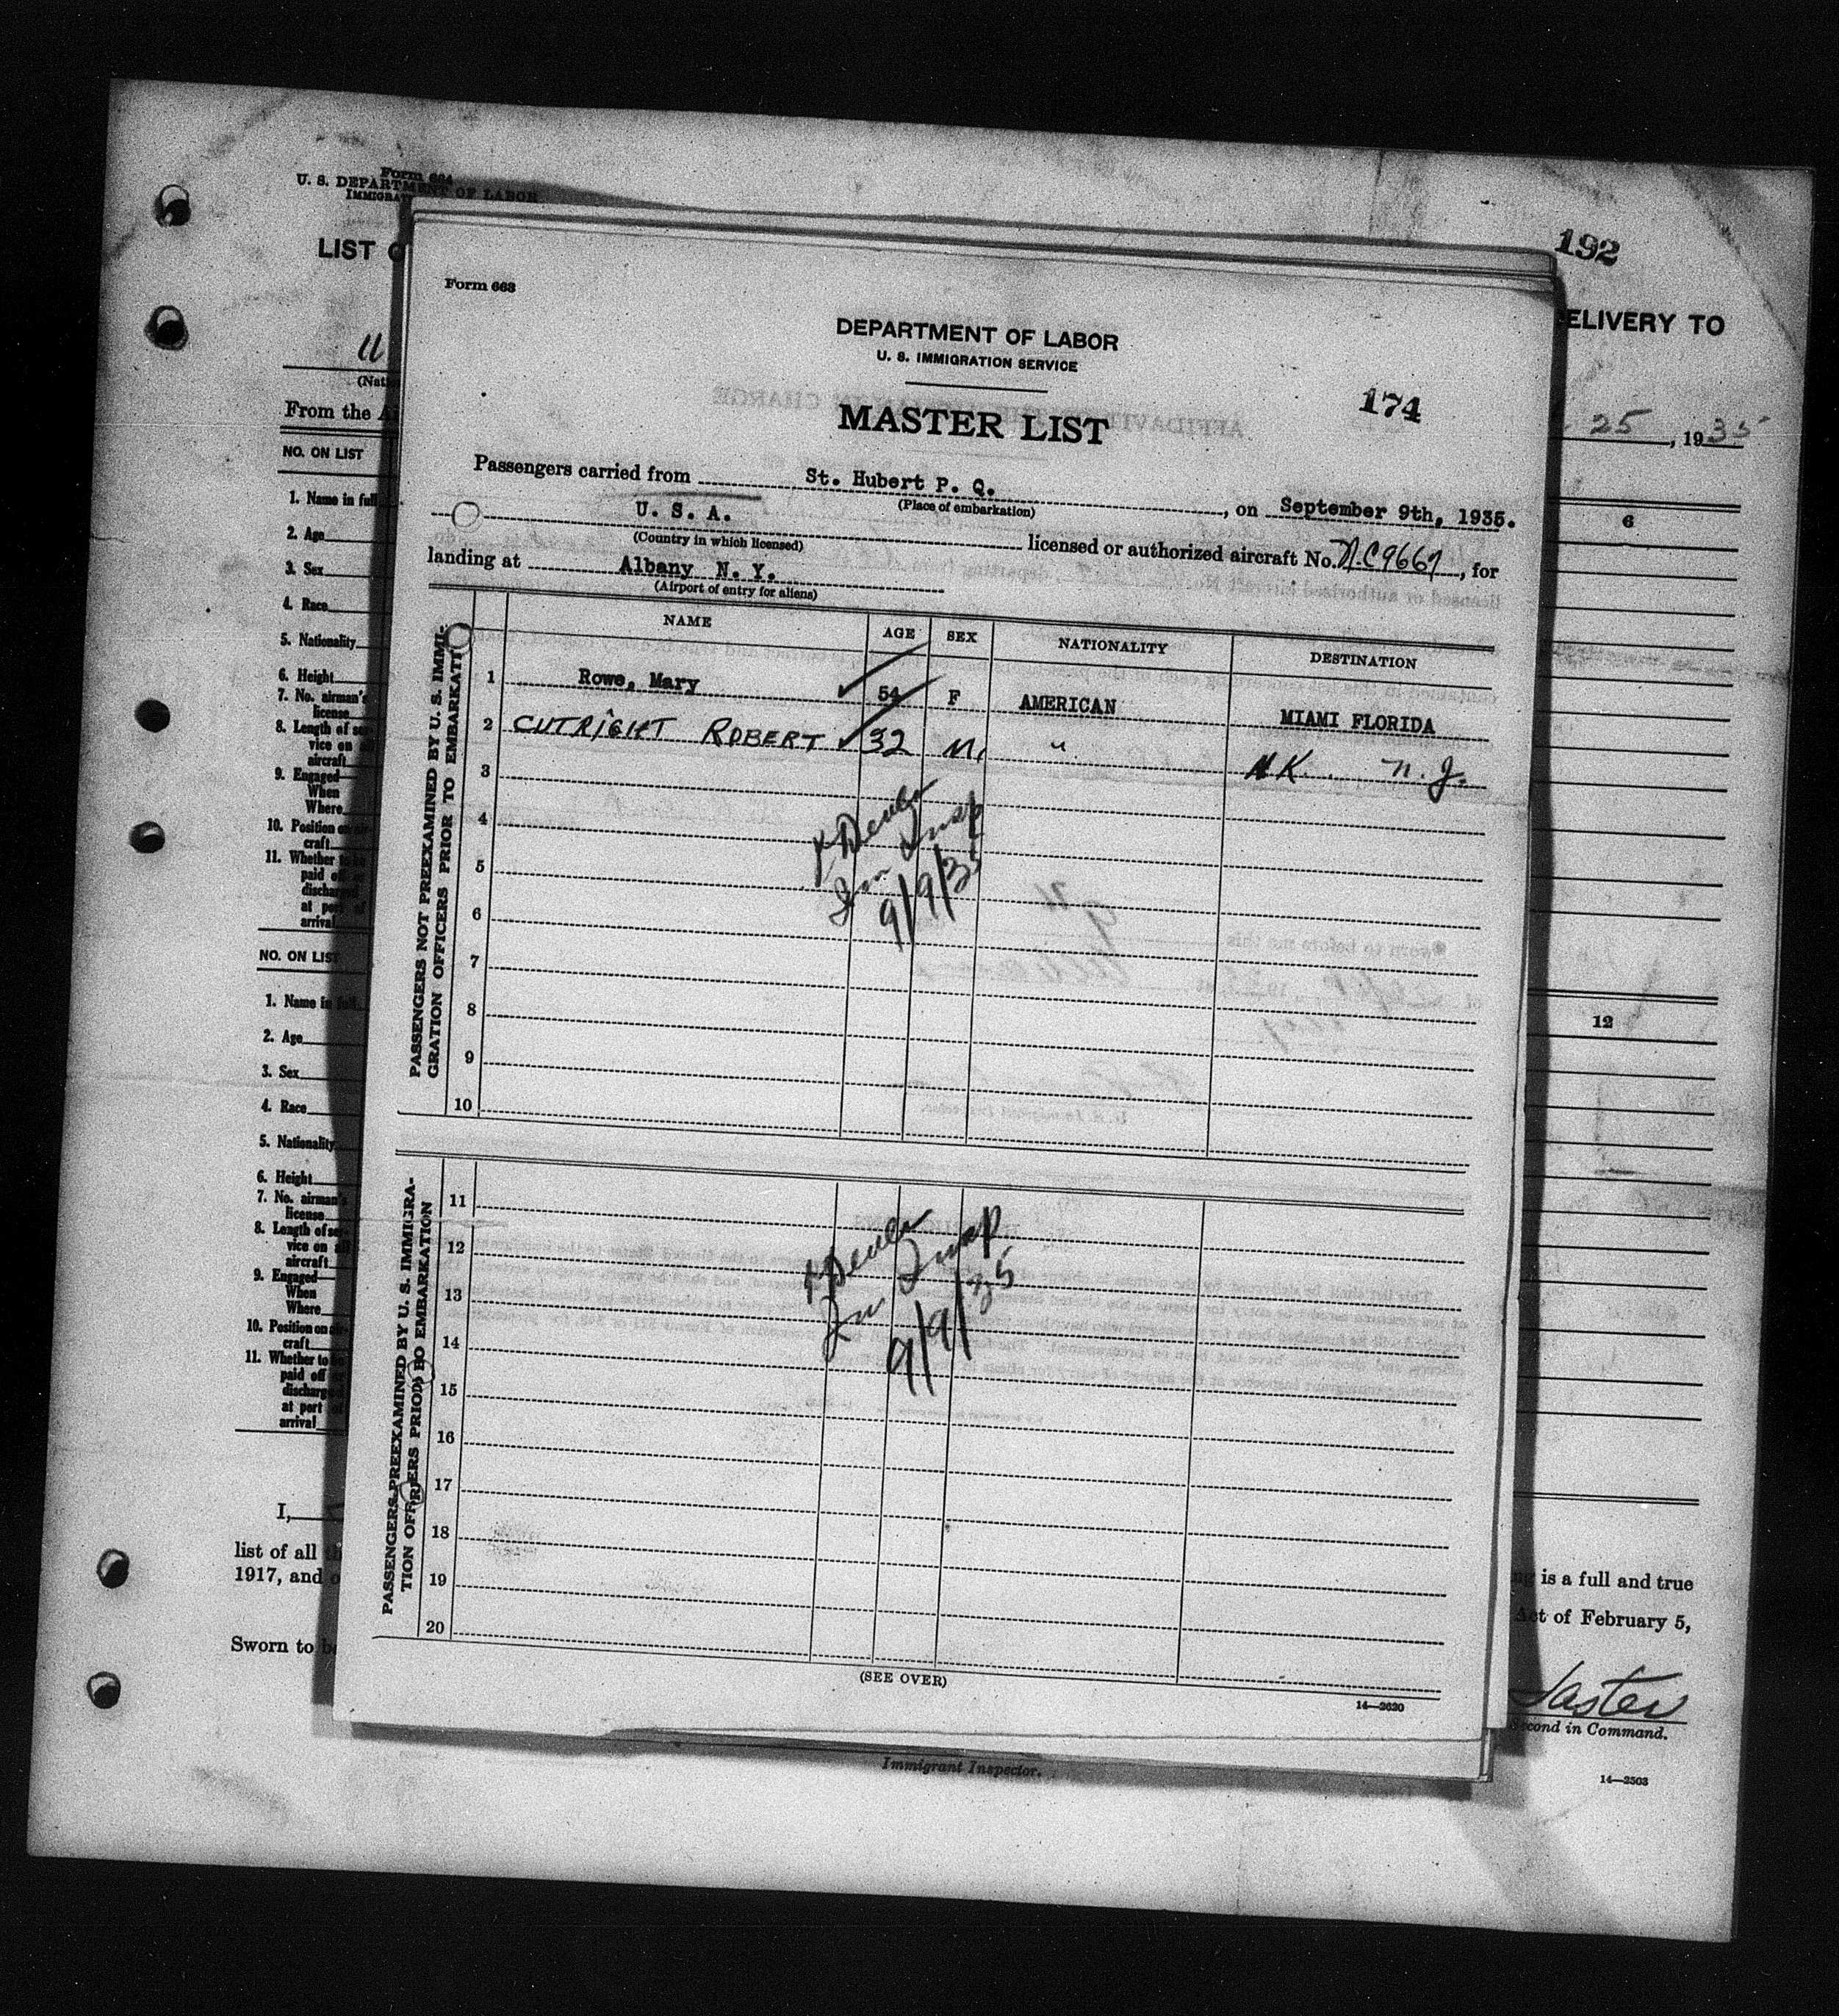 Form 664
U. S. DEPARTMENT OF LABOR
LIST
192
ELIVERY TO
From the
25, 1935
NO. ON LIST
6
1. Name in full
2. Age
3. Sex
4. Race
5. Nationality
6. Height
7. No. airman's
license
8. Length of ser-
vice on
aircraft
9. Engaged
When
Where
10. Position on air-
craft
11. Whether to be
paid off or
discharged
at port of
arrival
NO. ON LIST
12
1. Name in full
2. Age
3. Sex
4. Race
5. Nationality
6. Height
7. No. airman's
license
8. Length of ser-
vice on
aircraft
9. Engaged
When
Where
10. Position on air-
craft
11. Whether to be
paid off or
discharged
at port of
arrival
I,
list of all
is a full and true
1917, and
Act of February 5,
Sworn to be
Second in Command.
Immigrant Inspector.
14—2503
Form 663
DEPARTMENT OF LABOR
U. S. IMMIGRATION SERVICE
174
MASTER LIST
Passengers carried from St. Hubert P. Q., on September 9th, 1935.
(Place of embarkation)
U. S. A. licensed or authorized aircraft No. N.C9667, for
(Country in which licensed)
landing at Albany N. Y.
(Airport of entry for aliens)
NAME AGE SEX NATIONALITY DESTINATION
PASSENGERS NOT PREEXAMINED BY U. S. IMMI-
GRATION OFFICERS PRIOR TO EMBARKATI
1 Rowe, Mary 54 F AMERICAN MIAMI FLORIDA
2 CUTRIGHT ROBERT 32 M. " N.K. N.J.
3
4
5
Im Insp
9/9/35
6
7
8
9
10
PASSENGERS PREEXAMINED BY U. S. IMMIGRA-
TION OFFICERS PRIOR TO EMBARKATION
11
12
13
Im Insp
14
9/9/35
15
16
17
18
19
20
(SEE OVER)
14—2620